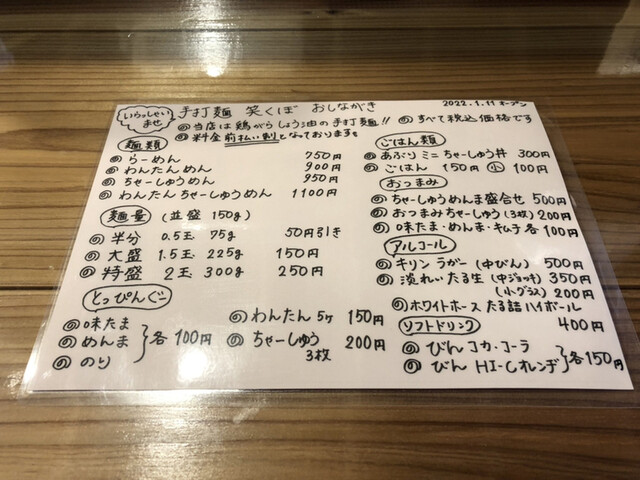 いらっしゃいませ
手打麺 笑くぼ おしながき
2022.1.11 オープン
の当店は鶏がらしょう油の手打麺!! のすべて税込価格です
の料金前払い制となっております。
麺類
のらーめん 750円
のわんたんめん 900円
のちゃーしゅうめん 950円
のわんたんちゃーしゅうめん 1100円
麺量 (並盛 150g)
の半分 0.5玉 75g 50円引き
の大盛 1.5玉 225g 150円
の特盛 2玉 300g 250円
とっぴんぐ
の味たま
のめんま
ののり
各100円
のわんたん5ヶ 150円
のちゃーしゅう 200円
3枚
ごはん類
のあぶりミニちゃーしゅう丼 300円
のごはん 150円 小 100円
おつまみ
のちゃーしゅうめんま盛合せ 500円
のおつまみちゃーしゅう(3枚) 200円
の味たま・めんま・キムチ 各100円
アルコール
のキリンラガー(中びん) 500円
の淡れい たる生 (中ジョッキ) 350円
(小グラス) 200円
のホワイトホース たる詰ハイボール
400円
ソフトドリンク
のびん コカ・コーラ
のびん HI-Cオレンヂ
各150円